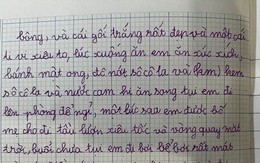 bông, và cái gối trắng rất đẹp và một cái
ti vi siêu to, lúc xuống ăn em ăn xúc xích,
bánh mật ong, đồ nót sô cô la và kem
sô cô la và nước cam khi ăn song tụi em đi
lên phòng để ngủ, một lúc sau em được bố
mẹ cho đi tàu lượn siêu tốc và vòng quay mặt
trời, buổi chưa tụi em đi bơi bể bơi rất mát